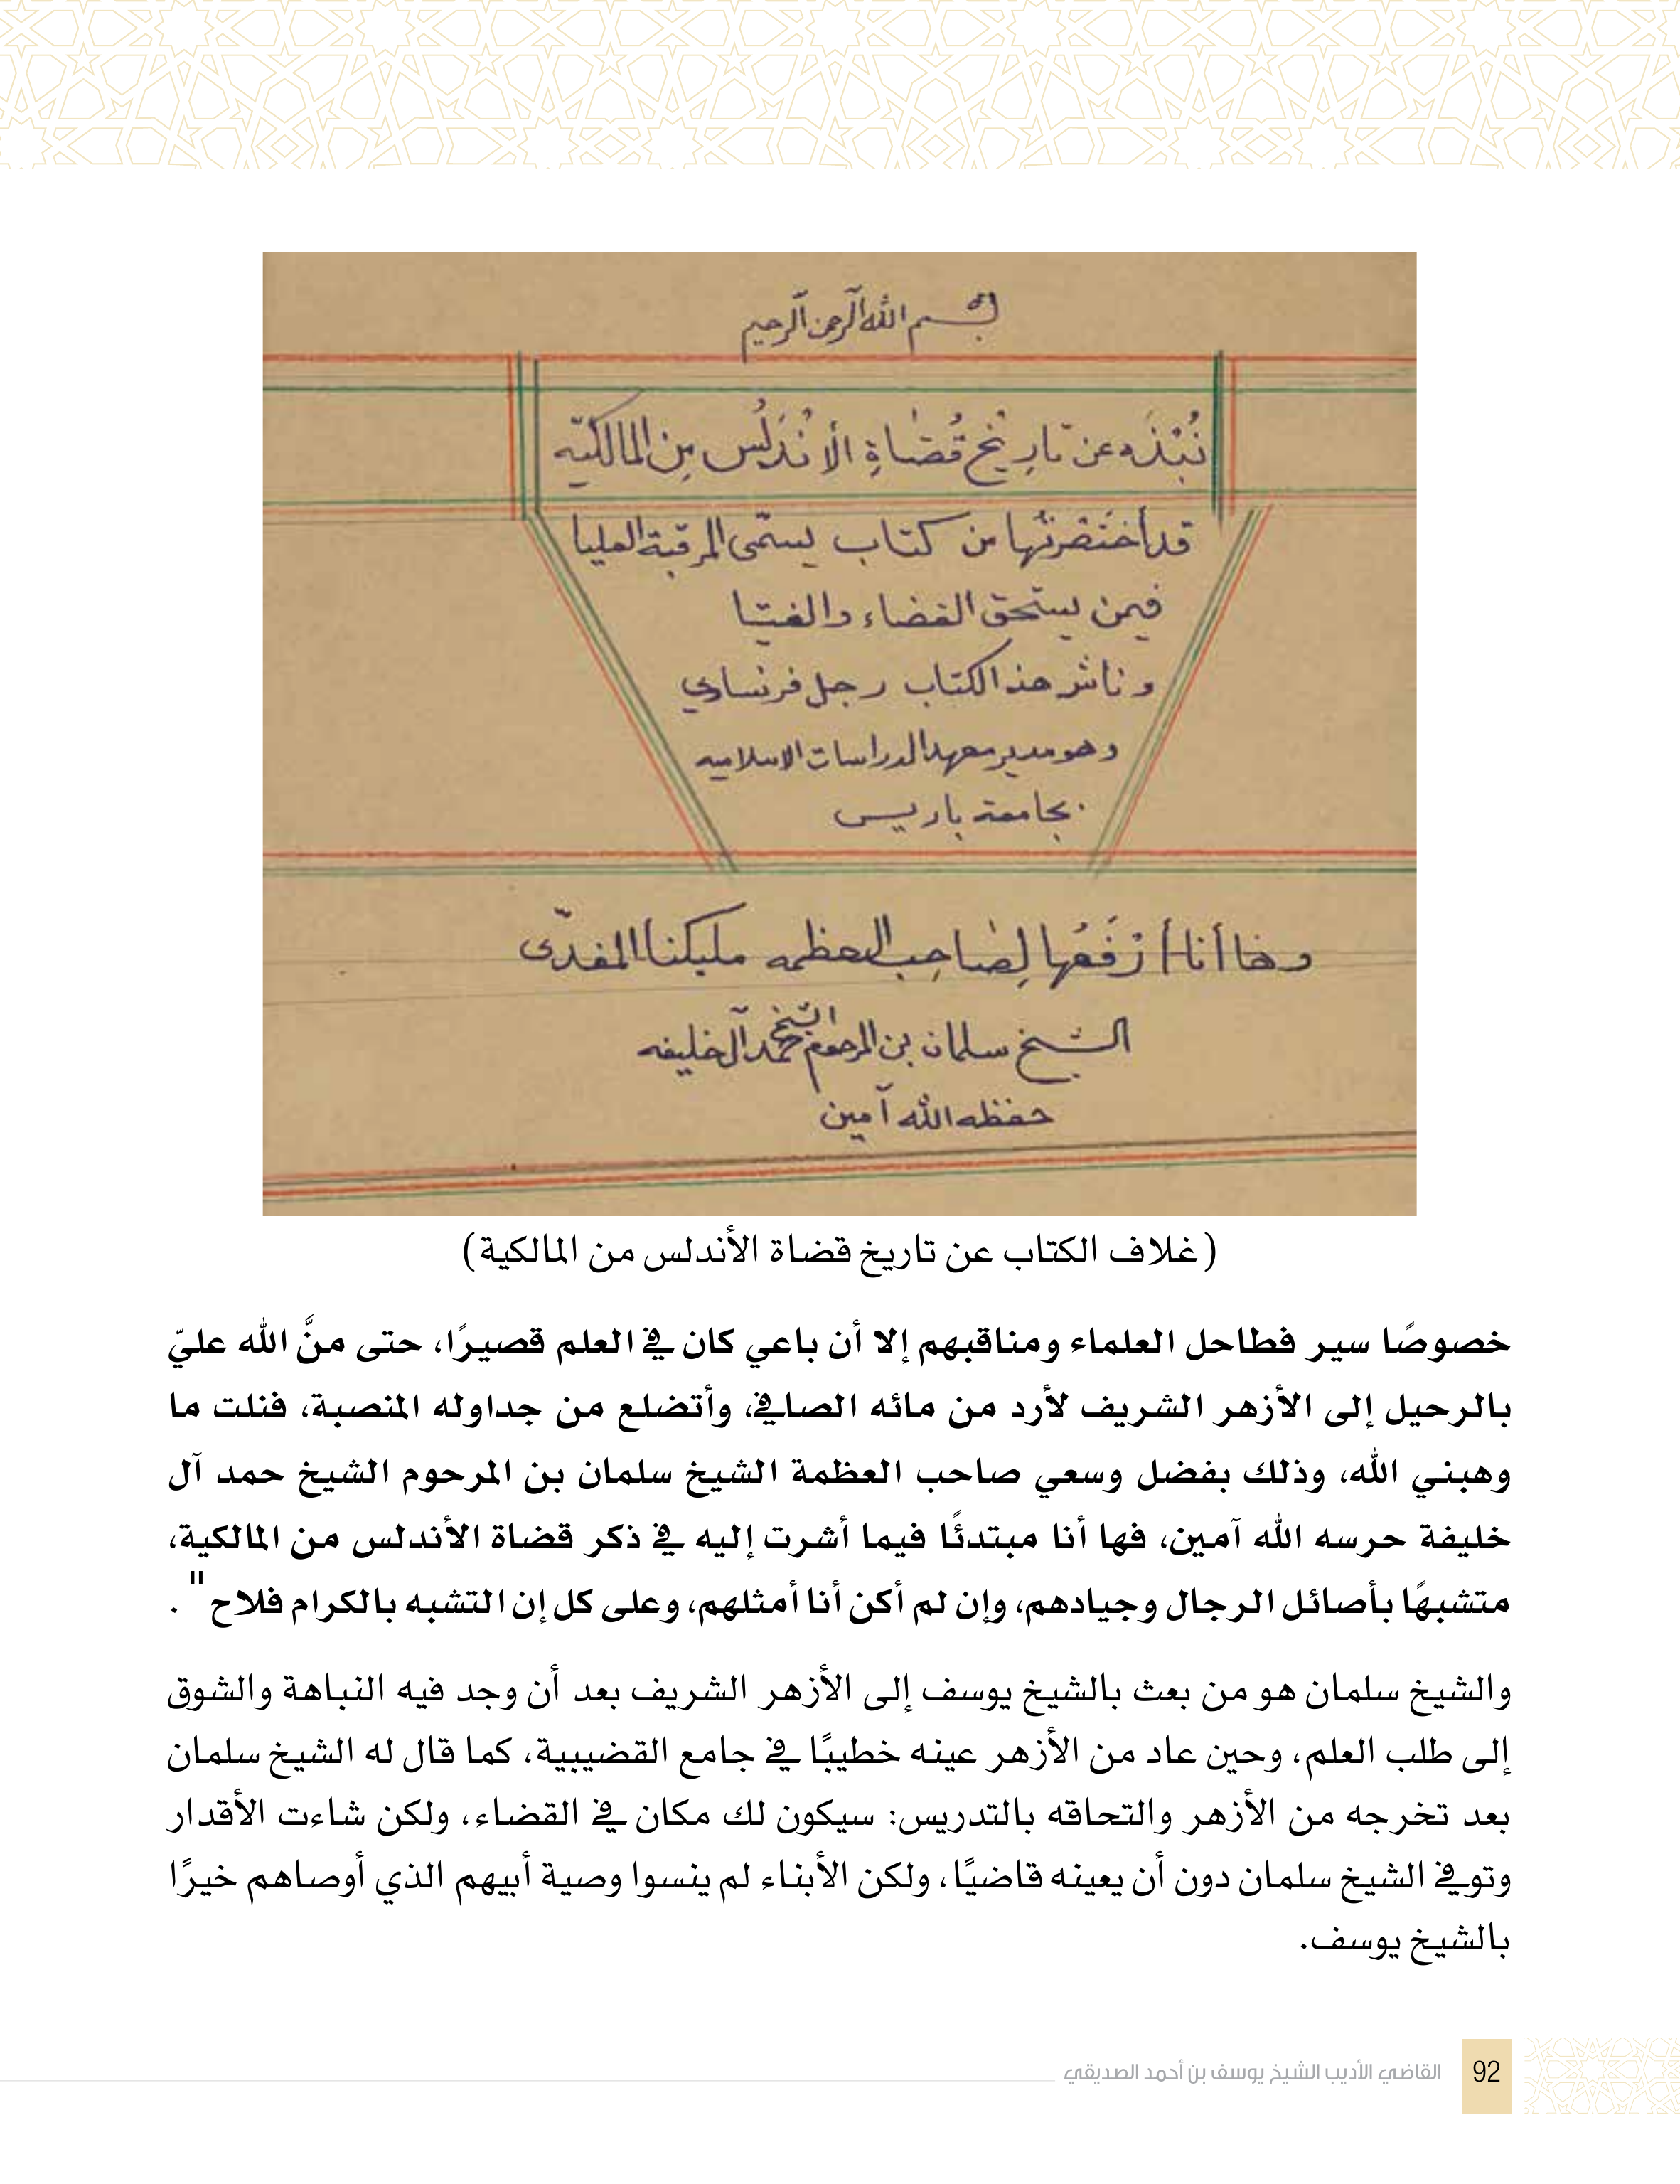 بسم الله الرحمن الرحيم
نُبْذَه عن تاريخ قُضَاةِ الأنْدَلُس مِن المالكيّه
قد أختصرتُها من كتاب يسمّى المرقبة العليا
فيمن يستحق القضاء والفتيا
وناشر هذا الكتاب رجل فرنساوي
وهو مدير معهد الدراسات الاسلاميه
بجامعة باريس
وها أنا أرْفَعُها لِصَاحِب العظمه مليكنا المفدّى
الشيخ سلمان بن المرحوم الشيخ حمد آل خليفه
حفظه الله آمين
(غلاف الكتاب عن تاريخ قضاة الأندلس من المالكية)
خصوصًا سير فطاحل العلماء ومناقبهم إلا أن باعي كان في العلم قصيرًا، حتى منَّ الله عليّ
بالرحيل إلى الأزهر الشريف لأرد من مائه الصافي، وأتضلع من جداوله المنصبة، فنلت ما
وهبني الله، وذلك بفضل وسعي صاحب العظمة الشيخ سلمان بن المرحوم الشيخ حمد آل
خليفة حرسه الله آمين، فها أنا مبتدئًا فيما أشرت إليه في ذكر قضاة الأندلس من المالكية،
متشبهًا بأصائل الرجال وجيادهم، وإن لم أكن أنا أمثلهم، وعلى كل إن التشبه بالكرام فلاح" .
والشيخ سلمان هو من بعث بالشيخ يوسف إلى الأزهر الشريف بعد أن وجد فيه النباهة والشوق
إلى طلب العلم، وحين عاد من الأزهر عينه خطيبًا في جامع القضيبية، كما قال له الشيخ سلمان
بعد تخرجه من الأزهر والتحاقه بالتدريس: سيكون لك مكان في القضاء، ولكن شاءت الأقدار
وتوفي الشيخ سلمان دون أن يعينه قاضيًا، ولكن الأبناء لم ينسوا وصية أبيهم الذي أوصاهم خيرًا
بالشيخ يوسف.
القاضي الأديب الشيخ يوسف بن أحمد الصديقي
92